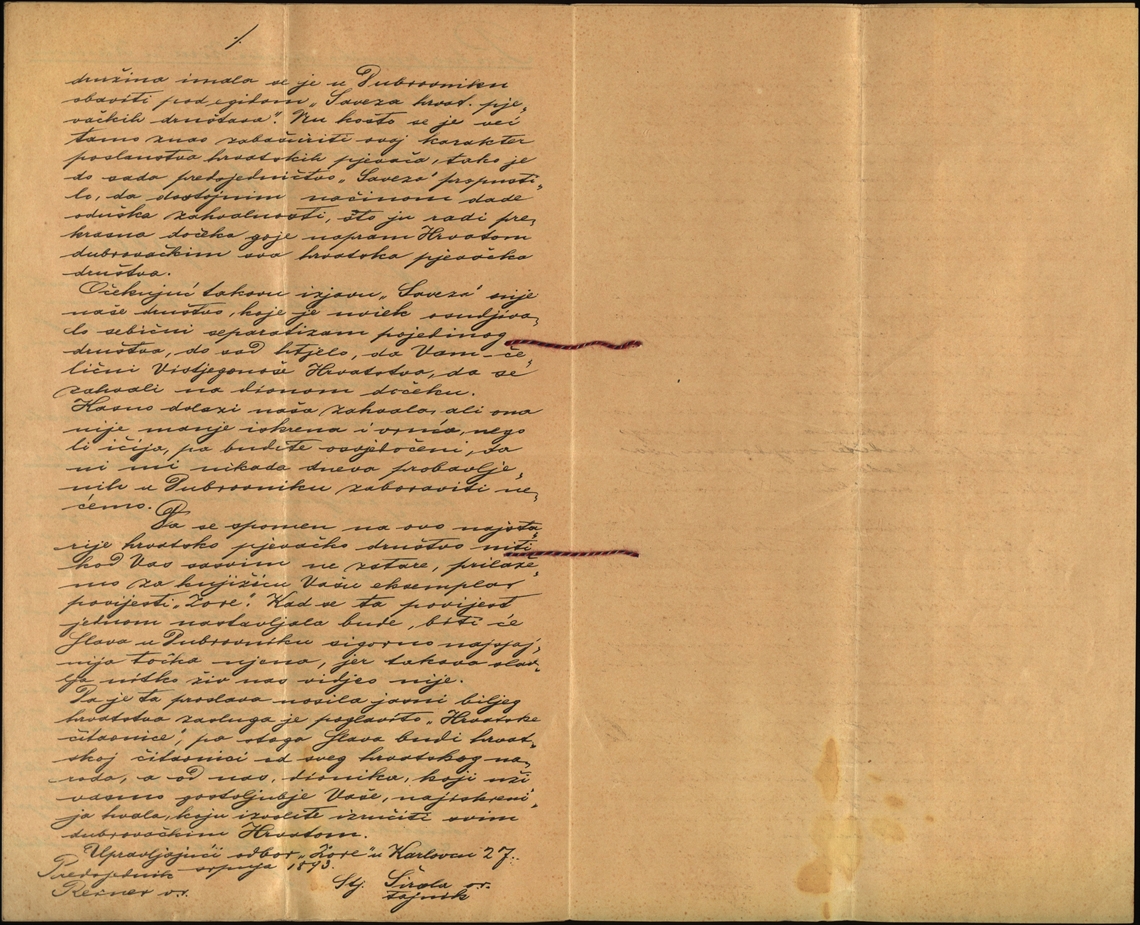 ·/.
družina imala se je u Dubrovniku
obaviti pod egidom „Saveza hrvat. pje„
vačkih društava". Nu košto se je već
tamo znao zabašuriti ovaj karakter
poslanstva hrvatskih pjevača, tako je
do sada predsjedničtvo „Saveza" propusti„
lo, da dostojnim načinom dade
oduška zahvalnosti, što ju radi pre„
krasna dočeka goje napram Hrvatom
dubrovačkim sva hrvatska pjevačka
društva.
Očekujuć takovu izjavu „Saveza" nije
naše društvo, koje je uviek osudjiva„
lo sebični separatizam pojedinog
društva, do sad htjelo, da Vam - če„
lični Vistjegonoše Hrvatstva, da se
zahvali na divnom dočeku.
Kasno dolazi naša zahvala, ali ona
nije manje iskrena i vruća, nego
li ičija, pa budite osvjedočeni, da
ni mi nikada dneva probavlje„
nih u Dubrovniku zaboraviti ne„
ćemo.
Da se spomen na ovo najsta„
rije hrvatsko pjevačko društvo niti
kod Vas sasvim ne zatare, prilaže„
mo za knjižicu Vašu eksemplar
povijesti „Zore". Kad se ta povijest
jednom nastavljala bude, biti će
slava u Dubrovniku sigurno najsjaj„
nija točka njena, jer takova slav„
lja nitko živ nas vidjeo nije.
Da je ta proslava nosila javni biljeg
hrvatstva zasluga je poglavito „Hrvatske
čitaonice", pa stoga slava budi hrvat„
skoj čitaonici od sveg hrvatskog na„
roda, a od nas, dionika, koji uži„
vasmo gostoljubje Vaše, najiskreni„
ja hvala, koju izvolite izručiti svim
dubrovačkim Hrvatom.
Upravljajući odbor „Zore" u Karlovcu 27.
srpnja 1893.
Predsjednik
Rezner v.r.
Stj. Širola v.r.
tajnik